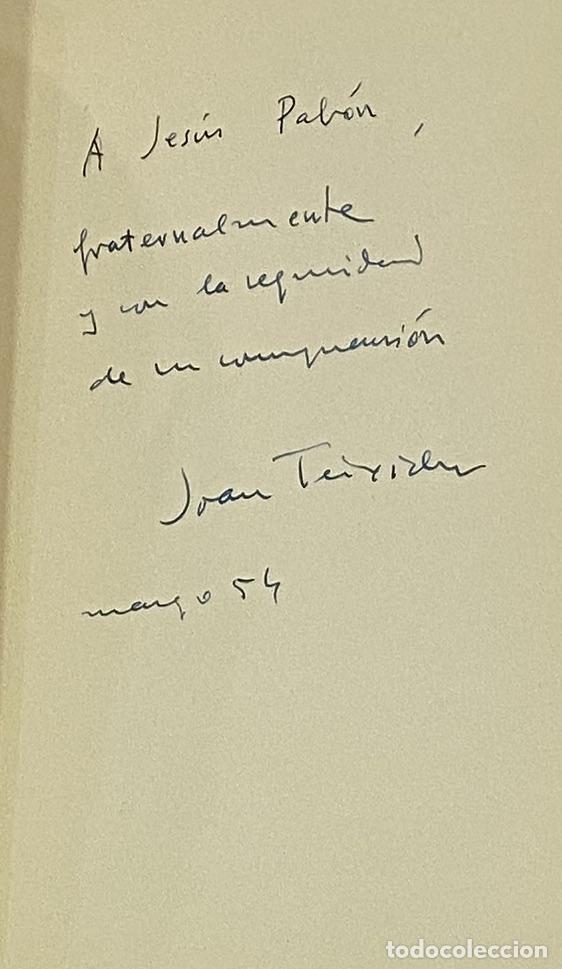 A Jesús Pabón,
fraternalmente
y con la seguridad
de su comprensión
Joan Teixidor
marzo 54
todocoleccion